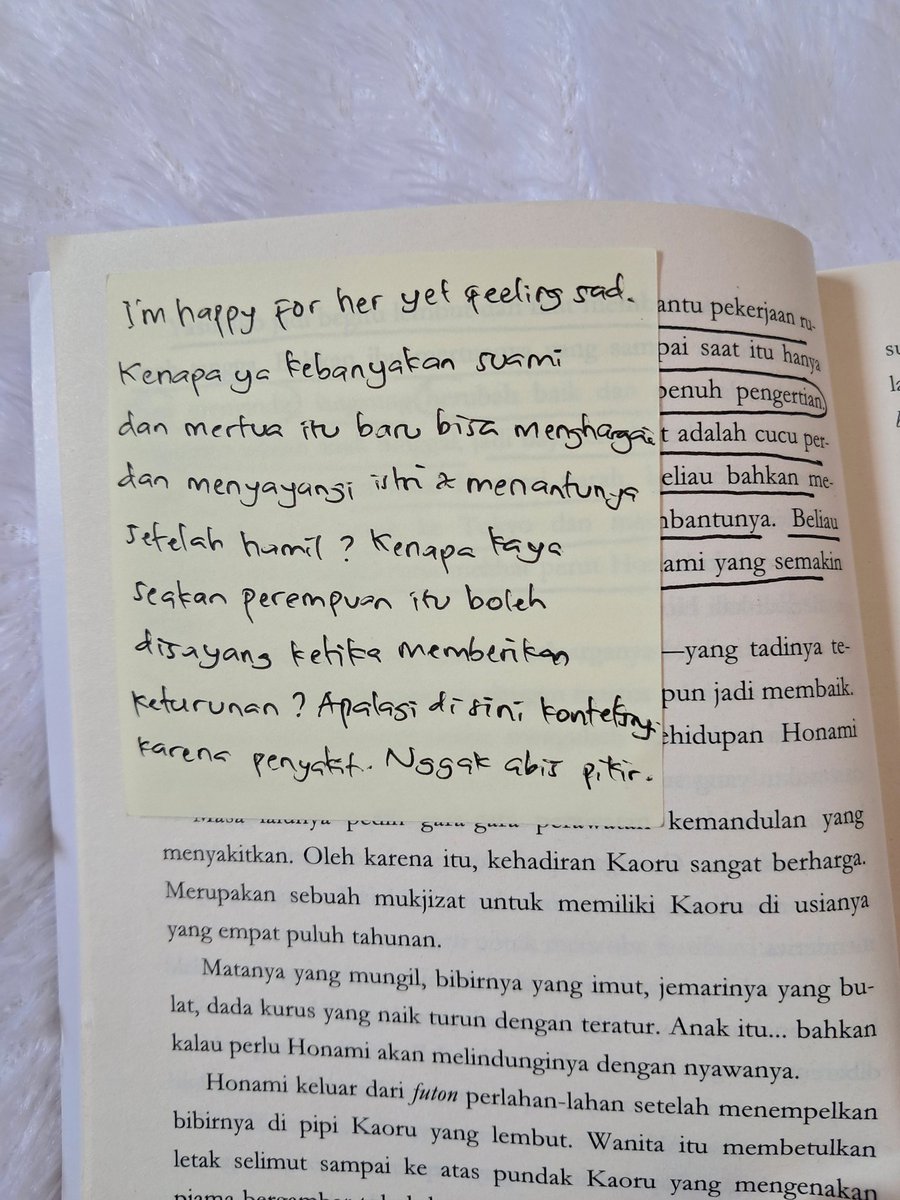 I'm happy for her yet feeling sad.
Kenapa ya kebanyakan suami
dan mertua itu baru bisa menghargai
dan menyayangi istri & menantunya
setelah hamil? Kenapa kaya
seakan perempuan itu boleh
disayang ketika memberikan
keturunan? Apalagi disini konteksnya
karena penyakit. Nggak abis pikir.
antu pekerjaan ru-
pai saat itu hanya
penuh pengertian.
t adalah cucu per-
eliau bahkan me-
nbantunya. Beliau
ami yang semakin
—yang tadinya te-
pun jadi membaik.
ehidupan Honami
Masa lalunya pedih gara-gara perawatan kemandulan yang
menyakitkan. Oleh karena itu, kehadiran Kaoru sangat berharga.
Merupakan sebuah mukjizat untuk memiliki Kaoru di usianya
yang empat puluh tahunan.
Matanya yang mungil, bibirnya yang imut, jemarinya yang bu-
lat, dada kurus yang naik turun dengan teratur. Anak itu... bahkan
kalau perlu Honami akan melindunginya dengan nyawanya.
Honami keluar dari futon perlahan-lahan setelah menempelkan
bibirnya di pipi Kaoru yang lembut. Wanita itu membetulkan
letak selimut sampai ke atas pundak Kaoru yang mengenakan
su
la